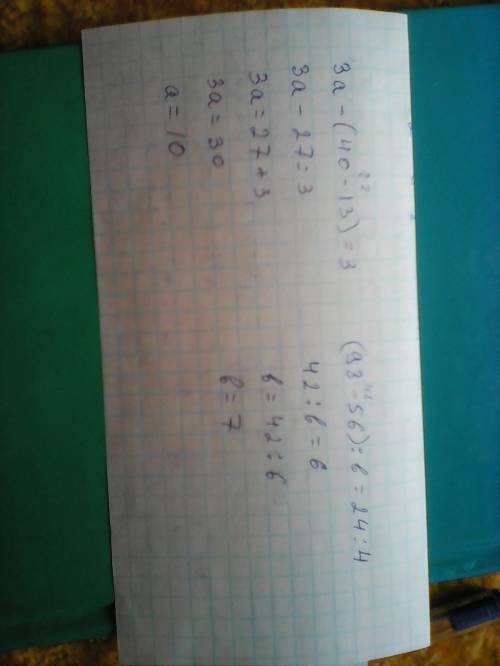 3a - (40 - 13) = 3
27
3a - 27 = 3
3a = 27 + 3
3a = 30
a = 10
(98 - 56) : в = 24 : 4
42
42 : в = 6
в = 42 : 6
в = 7